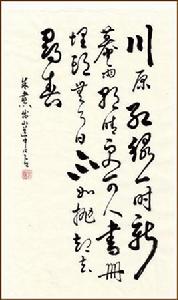 川原紅綠一時新
暮雨朝晴更可人書冊
埋頭無了日不如抛却去
尋春
朱熹